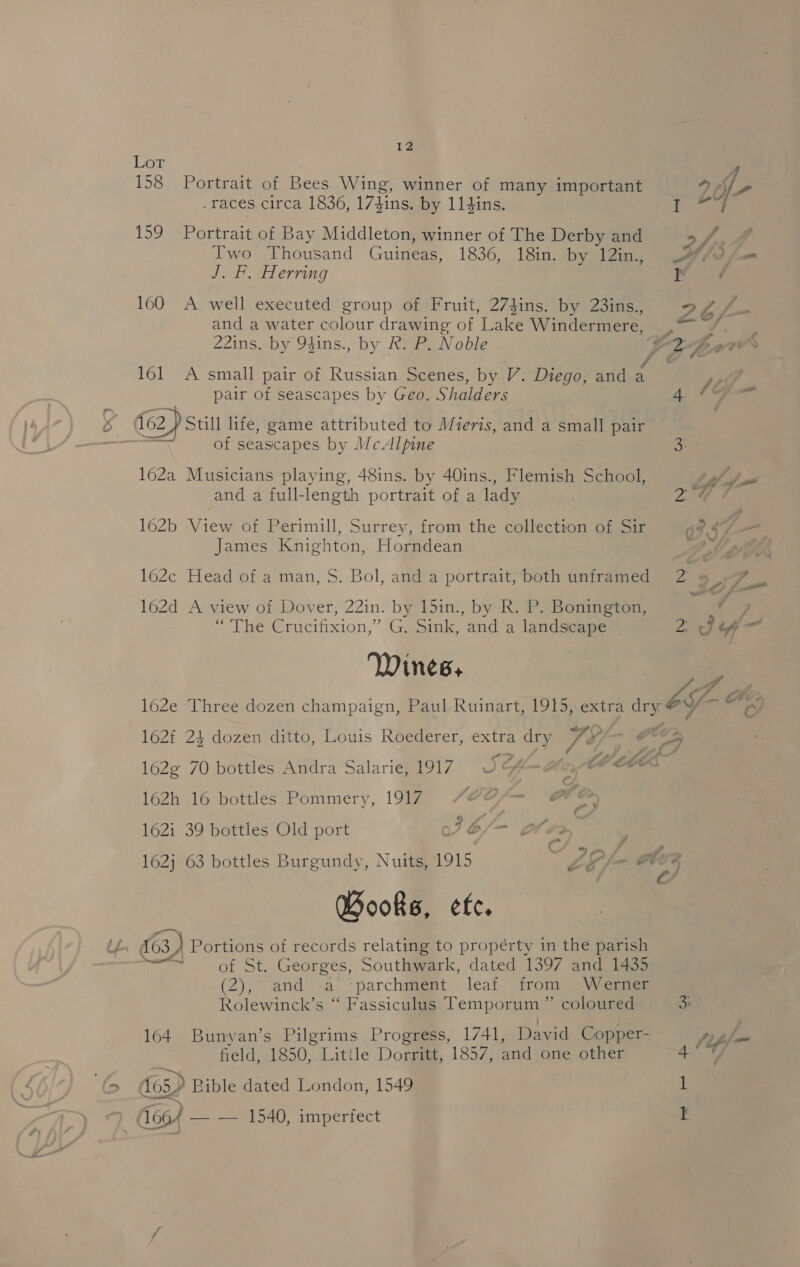 12
Lot
158 Portrait of Bees Wing, winner of many important
races circa 1836, 17½ins. by 11½ins. 1
159 Portrait of Bay Middleton, winner of The Derby and
Two Thousand Guineas, 1836, 18in. by 12in.,
J. F. Herring 1
160 A well executed group of Fruit, 27½ins. by 23ins., 26/-
and a water colour drawing of Lake Windermere,
22ins. by 9½ins., by R. P. Noble 2
161 A small pair of Russian Scenes, by V. Diego, and a
pair of seascapes by Geo. Shalders 4
162 Still life, game attributed to Mieris, and a small pair
of seascapes by McAlpine 3
162a Musicians playing, 48ins. by 40ins., Flemish School,
and a full-length portrait of a lady 2
162b View of Perimill, Surrey, from the collection of Sir
James Knighton, Horndean
162c Head of a man, S. Bol, and a portrait, both unframed 2
162d A view of Dover, 22in. by 15in., by R. P. Bonington,
“The Crucifixion,” G. Sink, and a landscape 2
Wines.
162e Three dozen champaign, Paul Ruinart, 1915, extra dry
162f 2½ dozen ditto, Louis Roederer, extra dry
162g 70 bottles Andra Salarie, 1917
162h 16 bottles Pommery, 1917
162i 39 bottles Old port
162j 63 bottles Burgundy, Nuits, 1915
Books, etc.
163 Portions of records relating to property in the parish
of St. Georges, Southwark, dated 1397 and 1435
(2), and a parchment leaf from Werner
Rolewinck’s “Fassiculus Temporum” coloured 3
164 Bunyan’s Pilgrims Progress, 1741, David Copper-
field, 1850, Little Dorritt, 1857, and one other 4
165 Bible dated London, 1549 1
166 — — 1540, imperfect 1